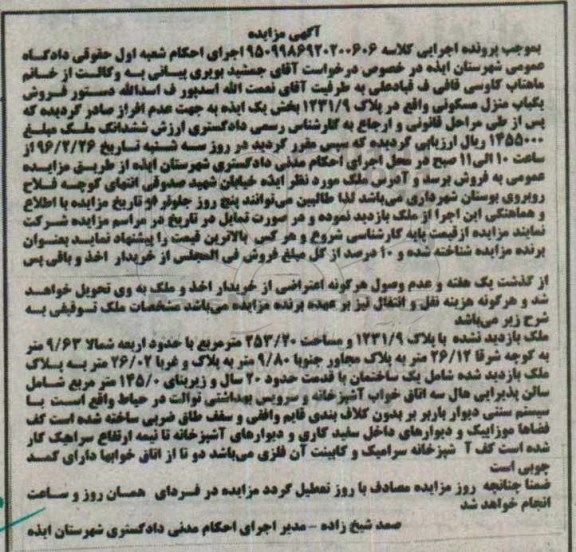 آگهی مزایده
بموجب پرونده اجرایی کلاسه ۹۵۰۹۹۸۶۹۲۰۲۰۰۶۰۶ اجرای احکام شعبه اول حقوقی دادگاه
عمومی شهرستان ایذه در خصوص درخواست آقای جمشید بویری پیانی به وکالت از خانم
ماهتاب کاوسی قافی ف قبادعلی به طرفیت آقای نعمت الله اسدپور ف اسدالله دستور فروش
یکباب منزل مسکونی واقع در پلاک ۱۲۳۱/۹ بخش یک ایذه به جهت عدم افراز صادر گردیده که
پس از طی مراحل قانونی و ارجاع به کارشناس رسمی دادگستری ارزش ششدانگ ملک مبلغ
۱۴۵۵۰۰۰ ریال ارزیابی گردیده که سپس مقرر گردید در روز سه شنبه تاریخ ۹۶/۲/۲۶ از
ساعت ۱۰ الی ۱۱ صبح در محل اجرای احکام مدنی دادگستری شهرستان ایذه از طریق مزایده
عمومی به فروش برسد و آدرس ملک مورد نظر ایذه خیابان شهید صدوقی انتهای کوچه فلاح
روبروی بوستان شهرداری می‌باشد لذا طالبین می‌توانند پنج روز جلوتر از تاریخ مزایده با اطلاع
و هماهنگی این اجرا از ملک بازدید نموده و در صورت تمایل در تاریخ در مراسم مزایده شرکت
نمایند مزایده از قیمت پایه کارشناسی شروع و هر کس بالاترین قیمت را پیشنهاد نماید بعنوان
برنده مزایده شناخته شده و ۱۰ درصد از کل مبلغ فروش فی المجلس از خریدار اخذ و باقی پس
از گذشت یک هفته و عدم وصول هرگونه اعتراضی از خریدار اخذ و ملک به وی تحویل خواهد
شد و هرگونه هزینه نقل و انتقال نیز بر عهده برنده مزایده می‌باشد مشخصات ملک توقیفی به
شرح زیر می‌باشد
ملک بازدید شده با پلاک ۱۲۳۱/۹ و مساحت ۲۵۳/۲۰ مترمربع با حدود اربعه شمالا ۹/۶۳ متر
به کوچه شرقا ۲۶/۱۲ متر به پلاک مجاور جنوبا ۹/۸۰ متر به پلاک و غربا ۲۶/۰۲ متر به پلاک
ملک بازدید شده شامل یک ساختمان با قدمت حدود ۲۰ سال و زیربنای ۱۴۵/۰ متر مربع شامل
سالن پذیرایی هال سه اتاق خواب آشپزخانه و سرویس بهداشتی توالت در حیاط واقع است با
سیستم سنتی دیوار باربر بر بدون کلاف بندی قایم وافقی و سقف طاق ضربی ساخته شده است کف
فضاها موزاییک و دیوارهای داخل سفید کاری و دیوارهای آشپزخانه تا نیمه ارتفاع سرامیک کار
شده است کف آ شپزخانه سرامیک و کابینت آن فلزی می‌باشد دو تا از اتاق خوابها دارای کمد
چوبی است
ضمنا چنانچه روز مزایده مصادف با روز تعطیل گردد مزایده در فردای همان روز و ساعت
انجام خواهد شد
صمد شیخ زاده - مدیر اجرای احکام مدنی دادگستری شهرستان ایذه